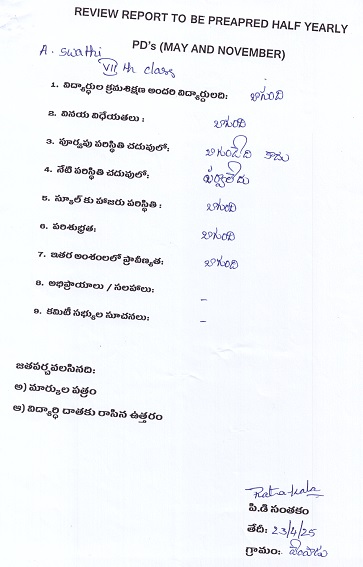 REVIEW REPORT TO BE PREAPRED HALF YEARLY
PD's (MAY AND NOVEMBER)
A. swathi
VII th class
1. విద్యార్థుల క్రమశిక్షణ అందరి విద్యార్థులది: బాగుంది
2. వినయ విధేయతలు : బాగుంది
3. పూర్వపు పరిస్థితి చదువులో: బాగుండేది కాదు
4. నేటి పరిస్థితి చదువులో: పర్వాలేదు
5. స్కూల్ కు హాజరు పరిస్థితి : బాగుంది
6. పరిశుభ్రత: బాగుంది
7. ఇతర అంశంలలో ప్రావీణ్యత: బాగుంది
8. అభిప్రాయాలు / సలహాలు: –
9. కమిటీ సభ్యుల సూచనలు: –
జతపర్చవలసినది:
అ) మార్కుల పత్రం
ఆ) విద్యార్థి దాతకు రాసిన ఉత్తరం
పి.డి సంతకం
తేదీ: 23/4/25
గ్రామం: